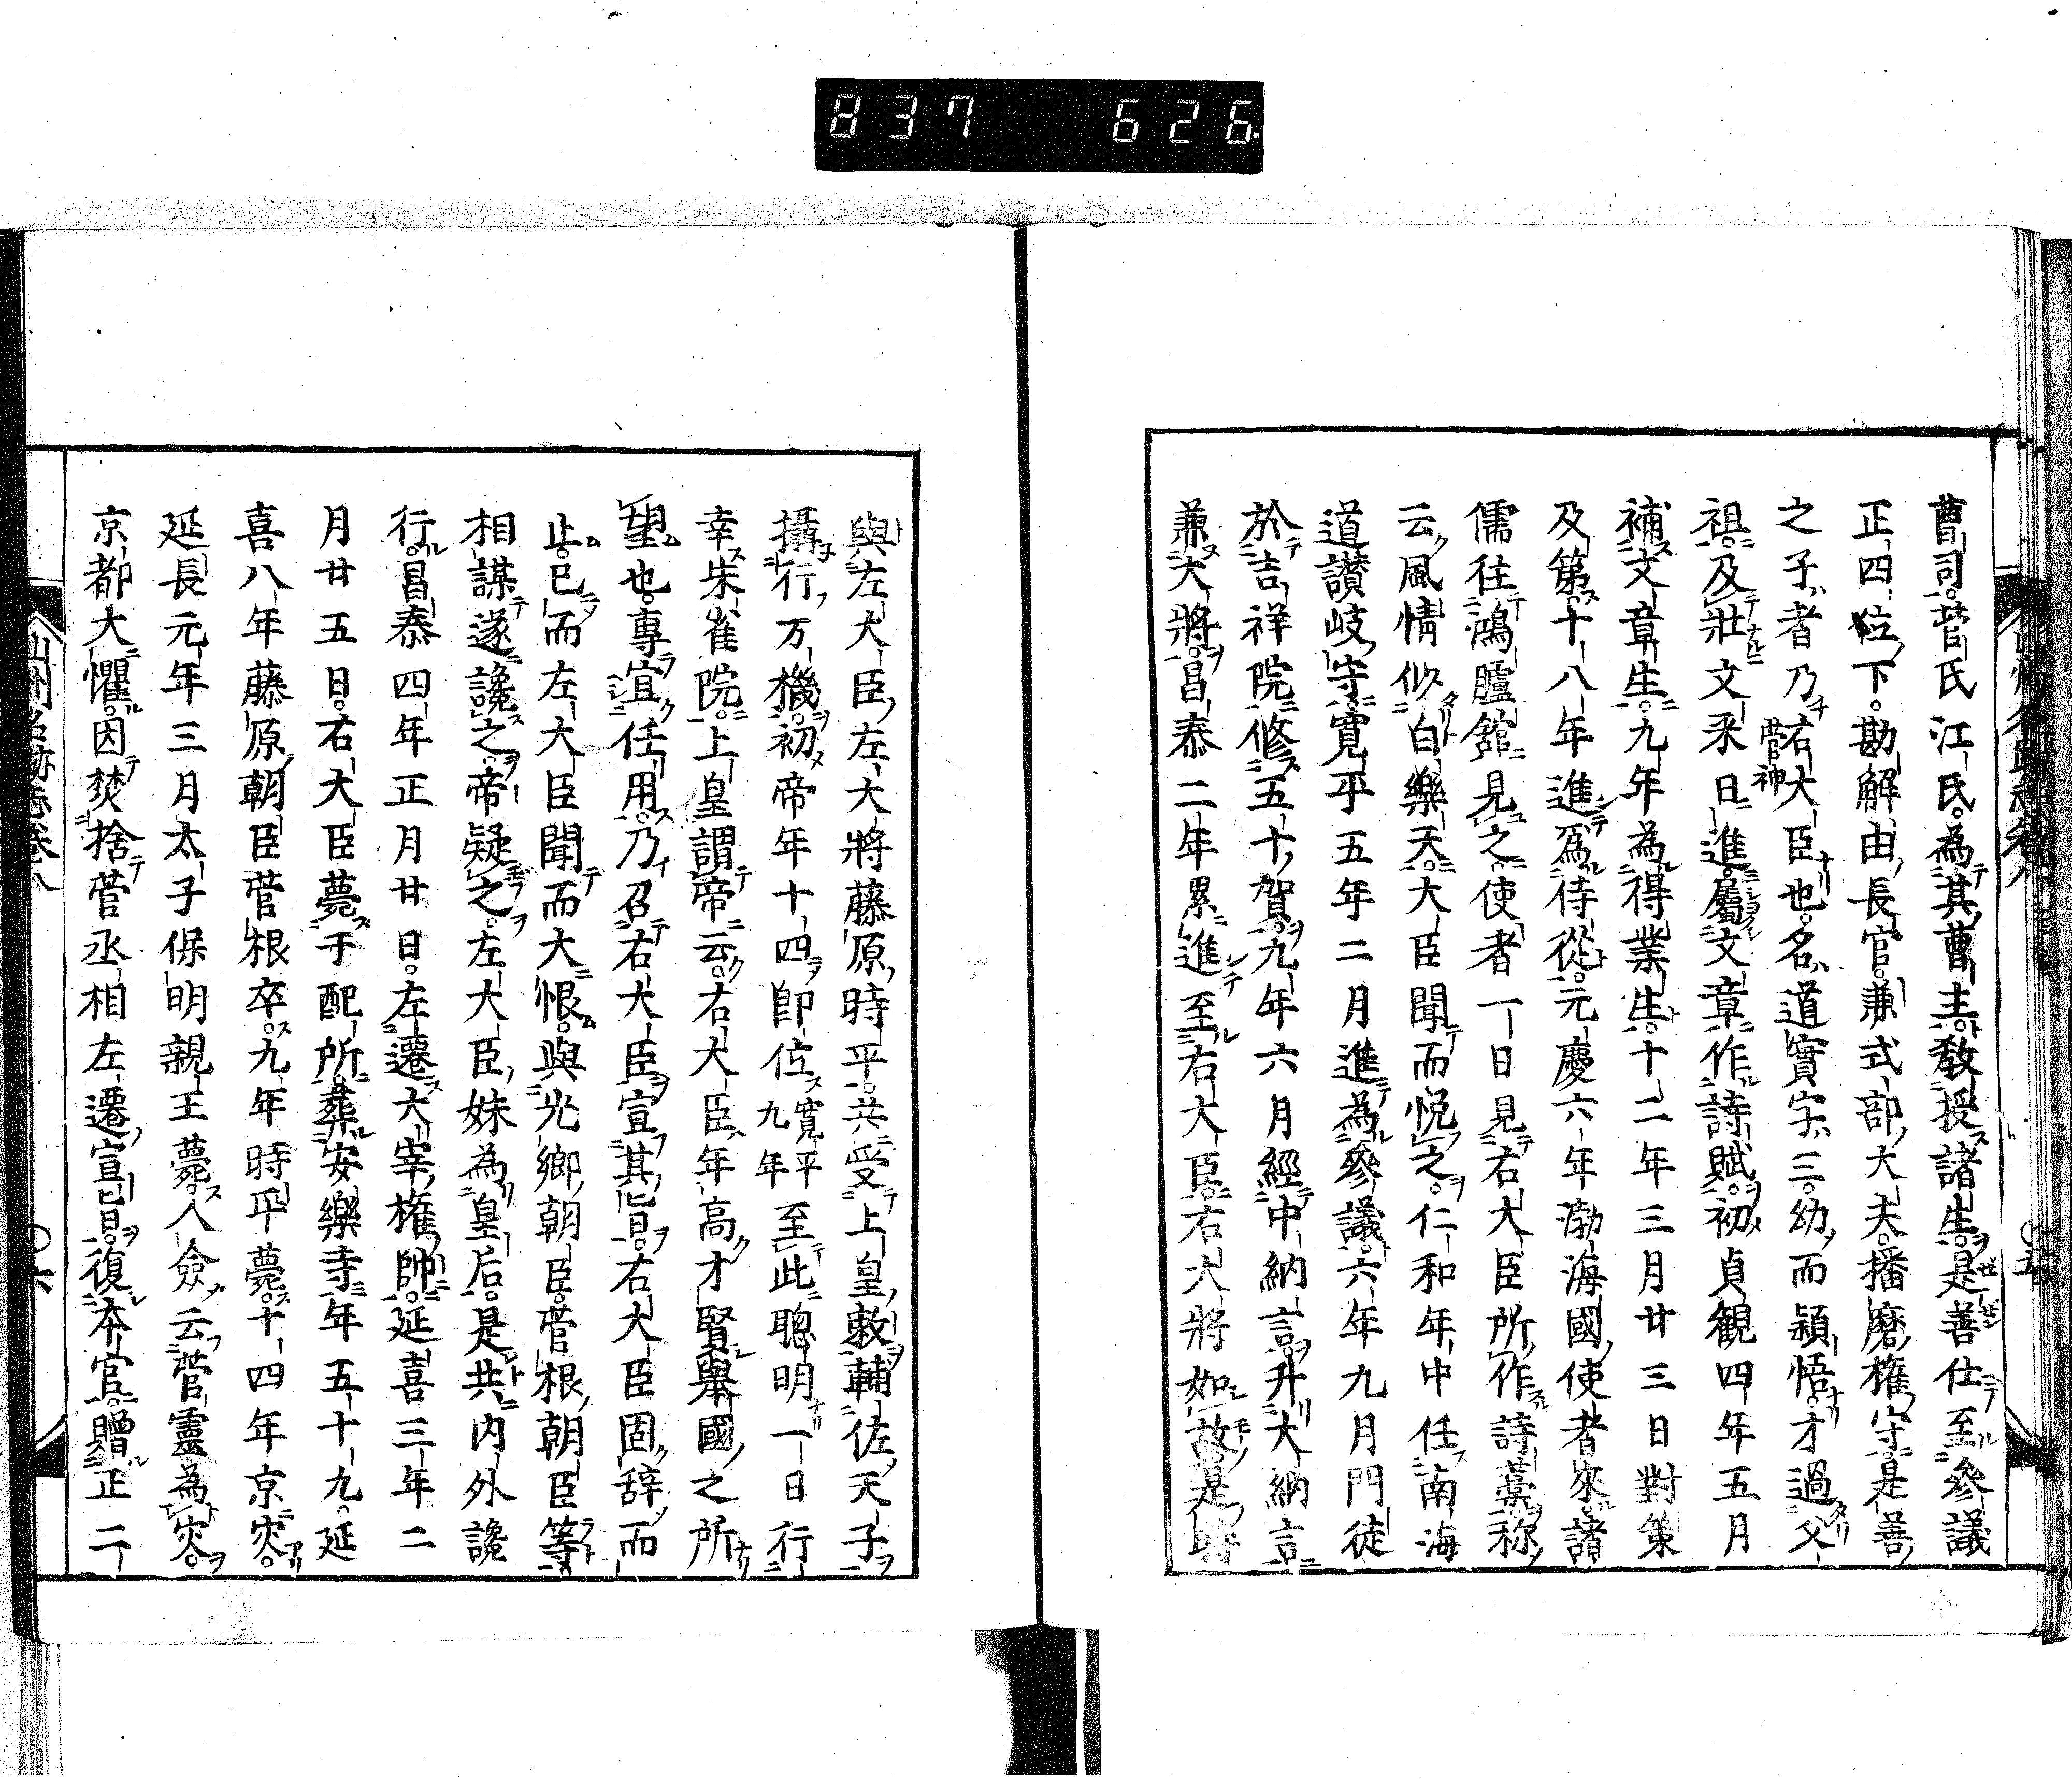 837 626
曹司菅氏江氏為其曹主教授諸生是善仕至參議
正四位下勘解由長官兼式部大夫播磨權守是善
之子者乃右大臣也名道實字三幼而穎悟才過父
菅神
祖及壯文采日進屬文章作詩賦初貞観四年五月
補文章生九年為得業生十二年三月廿三日對策
及第十八年進爲侍從元慶六年渤海國使者來諸
儒往鴻臚舘見之使者一日見右大臣所作詩藁称
云風情似白樂天大臣聞而悦之仁和年中任南海
道讃岐守寛平五年二月進為參議六年九月門徒
於吉祥院修五十賀九年六月經中納言升大納言
兼大將昌泰二年累進至右大臣右大將如故是時
與左大臣左大將藤原時平共受上皇敕輔佐天子
攝行万機初帝年十四即位寛平九年至此聰明一日行
幸朱雀院上皇謂帝云右大臣年高才賢舉國之所
望也專宜任用乃召右大臣宣其旨右大臣固辞而
止已而左大臣聞而大恨與光卿朝臣菅根朝臣等
相謀遂讒之帝疑之左大臣妹為皇后是共内外讒
行昌泰四年正月廿日左遷大宰權帥延喜三年二
月廿五日右大臣薨于配所葬安樂寺年五十九延
喜八年藤原朝臣菅根卒九年時平薨十四年京灾
延長元年三月太子保明親王薨人僉云菅靈為灾
京都大懼因焚捨菅丞相左遷宣旨復本官贈正二
山州名跡志卷八
〇六